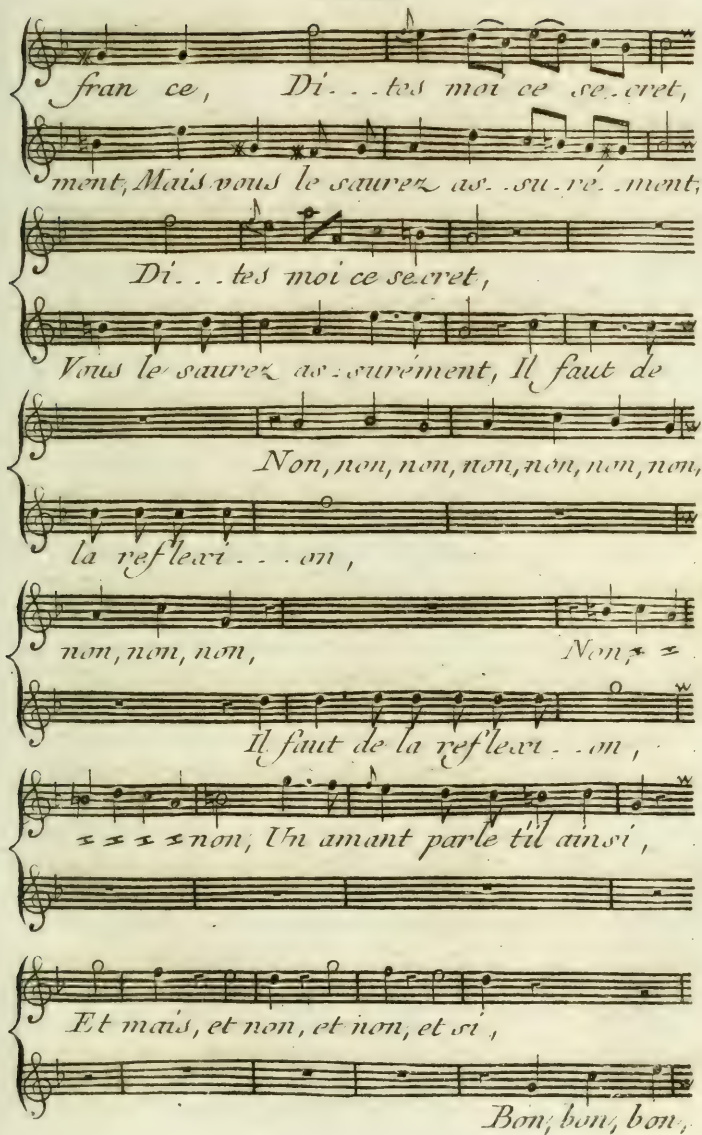 fran ce, Di...tes moi ce se..cret,
ment, Mais vous le saurez as..su.ré..ment,
Di...tes moi ce se.cret,
Vous le saurez as..surément, Il faut de
Non, non, non, non, non, non, non,
la reflexi...on,
non, non, non, Non,
Il faut de la reflexi..on,
non, Un amant parle t'il ainsi,
Et mais, et non, et non, et si,
Bon, bon, bon,